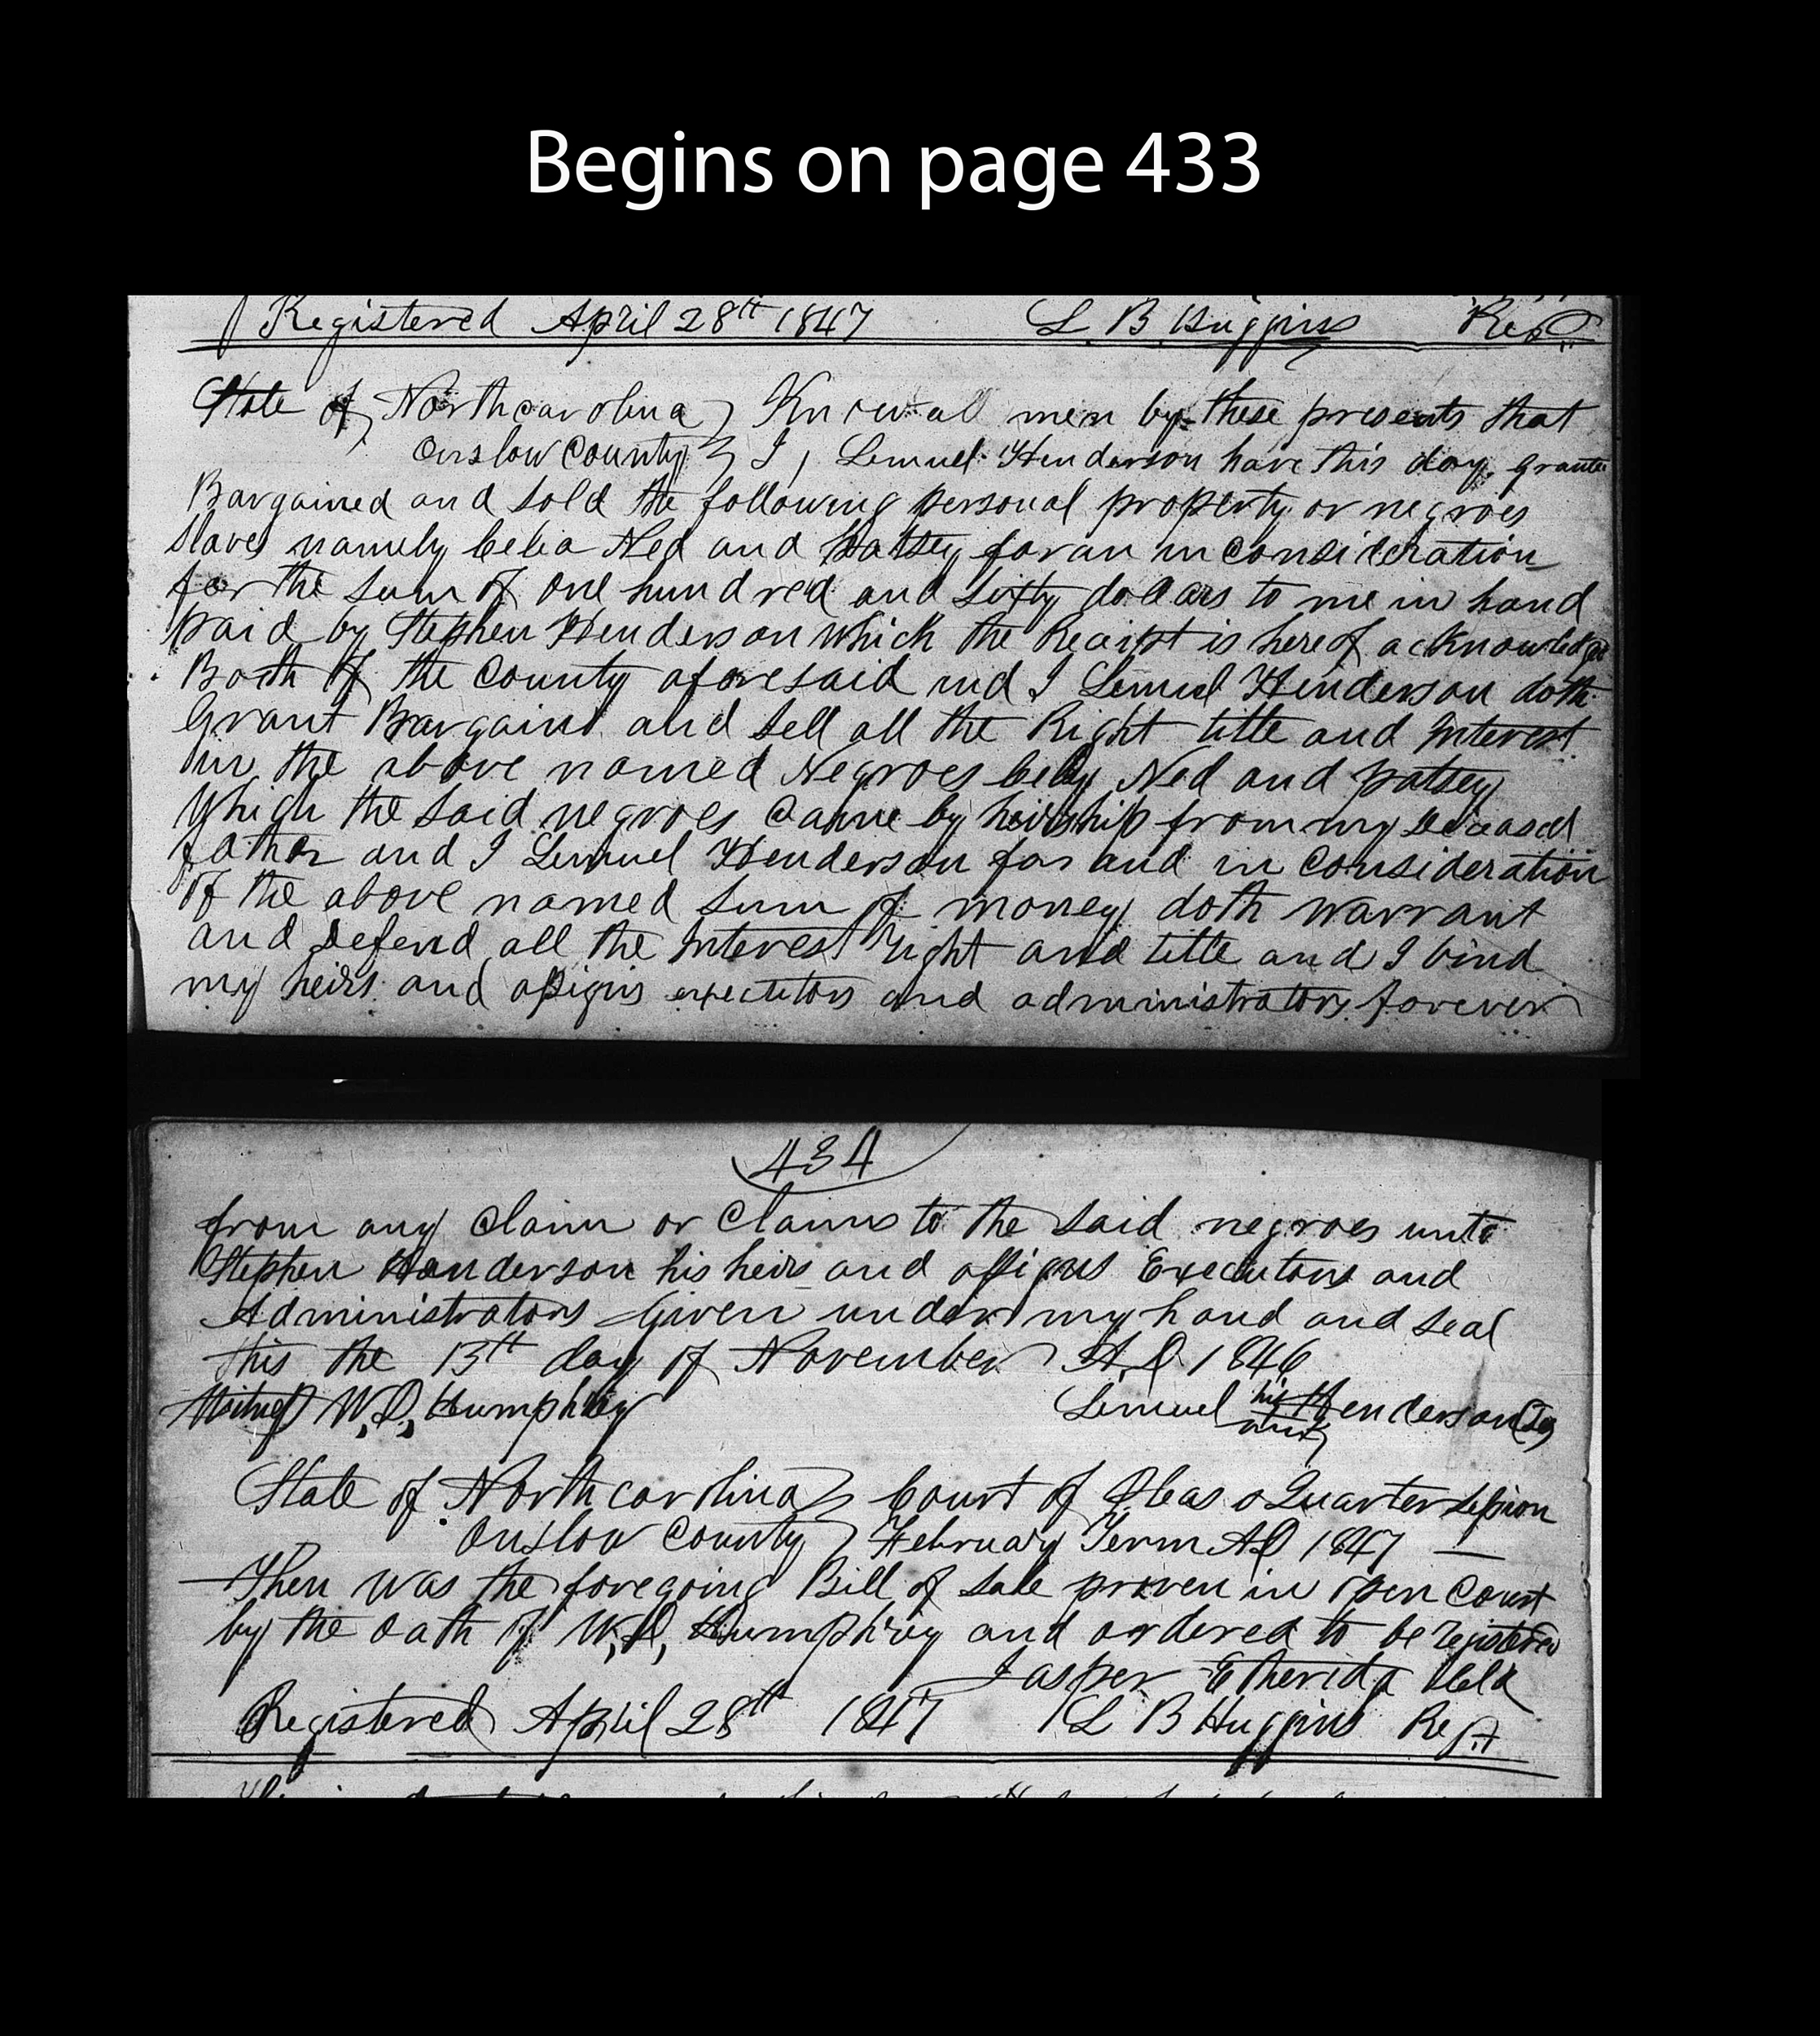 Begins on page 433
Registered April 28th 1847 L. B. Huggins Regr
State of Northcarolina } Know all men by these presents that
Onslow County } I, Lemuel Henderson have this day grante
Bargained and sold the following personal property or negroes
slaves namely Ned and Patsey for an in Consideration
for the sum of one hundred and sixty dollars to me in hand
paid by Stephen Henderson which the Receipt is hereof acknowledged
Both of the County aforesaid and I Lemuel Henderson doth
Grant Bargains and sell all the Right title and Interest
in the above named Negroes Ned and patsey
Which the said negroes Came by heirship from my deceased
father and I Lemuel Henderson for and in Consideration
of the above named sum of money doth warrant
and defend all the Interest right and title and I bind
my heirs and assigns executors and administrators forever
434
from any Claim or Claims to the said negroes unto
Stephen Henderson his heirs and assigns Executors and
Administrators Given under my hand and seal
this the 13th day of November A.D. 1846
W.D. Humphrey Lemuel his mark Henderson
State of Northcarolina } Court of Pleas & Quarter Session
Onslow County } February Term AD 1847 —
Then was the foregoing Bill of sale proven in open Court
by the oath of W,D, Humphrey and ordered to be registered
Jasper Etheridg Clk
Registered April 28th 1847 L B Huggins Regr